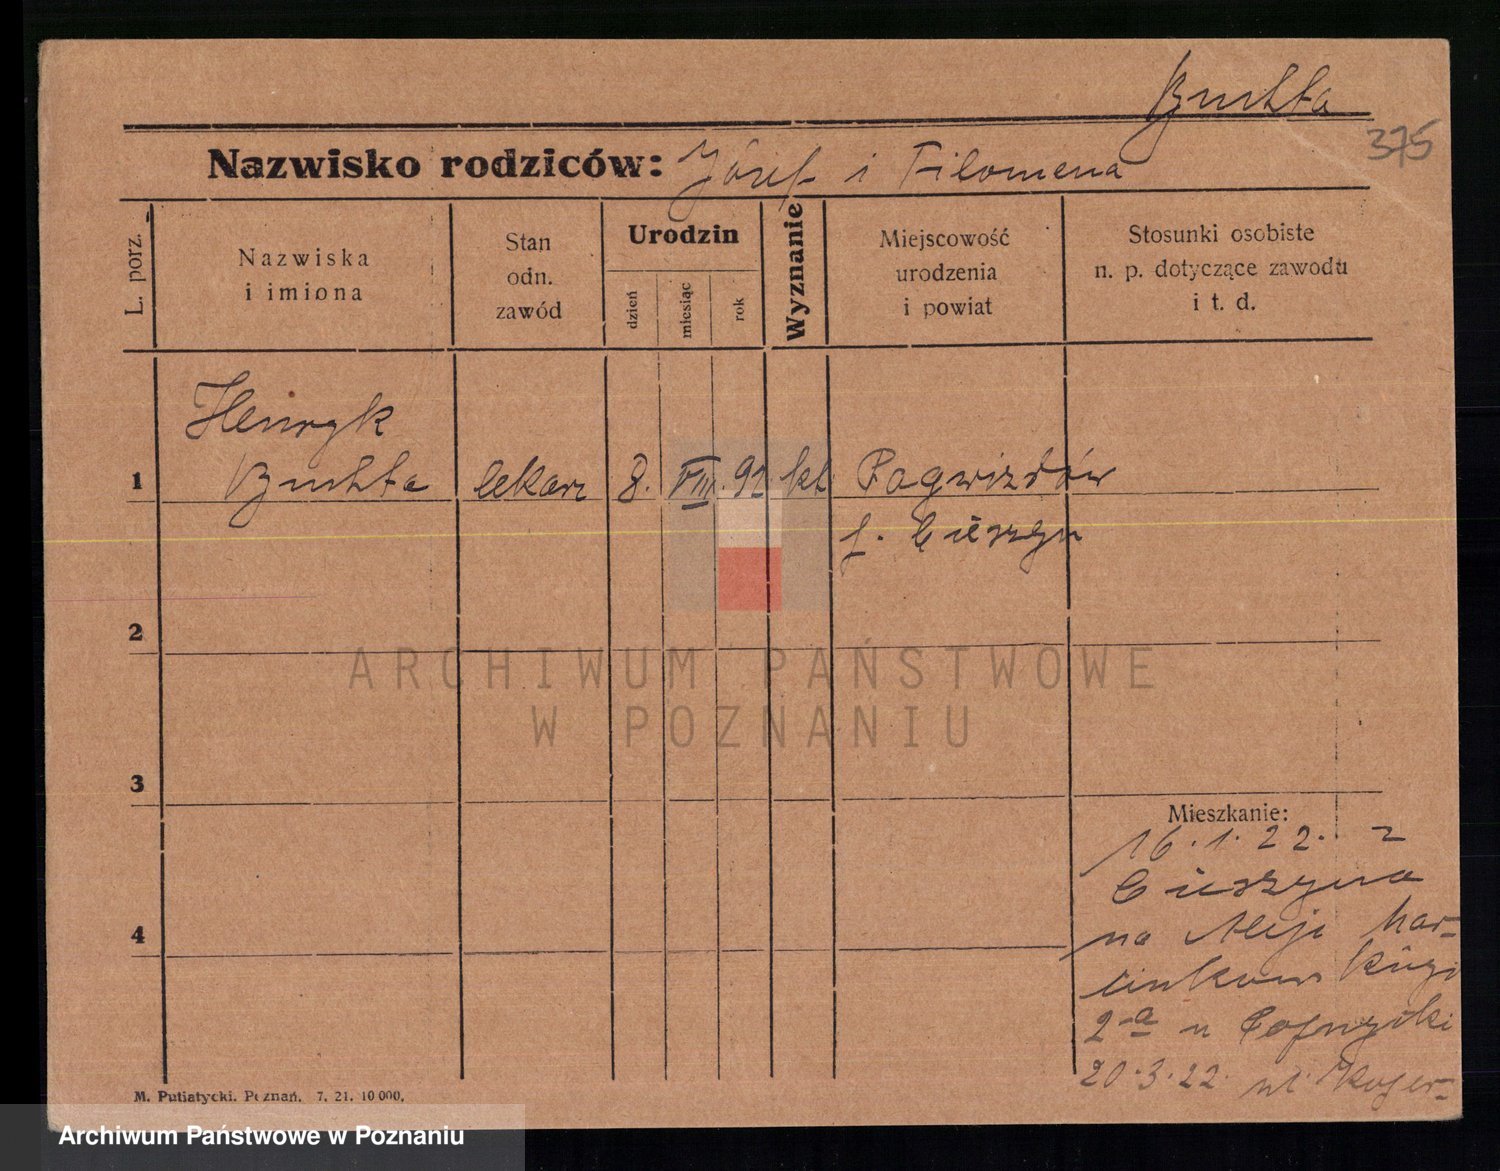 Buchta
375
Nazwisko rodziców: Józef i Filomena
L. porz.
Nazwiska
i imiona
Stan
odn.
zawód
Urodzin
dzień
miesiąc
rok
Wyznanie
Miejscowość
urodzenia
i powiat
Stosunki osobiste
n. p. dotyczące zawodu
i t. d.
Henryk
1 Buchta lekarz 8. VIII. 91 kt. Pogwizdów
p. Cieszyn
2
ARCHIWUM PAŃSTWOWE
W POZNANIU
3
Mieszkanie:
16.1.22. z
Cieszyna
4
na Aleje Mar-
cinkow
2-a u
20.3.22. ul.
M. Putiatycki. Poznań. 7. 21. 10 000.
Archiwum Państwowe w Poznaniu